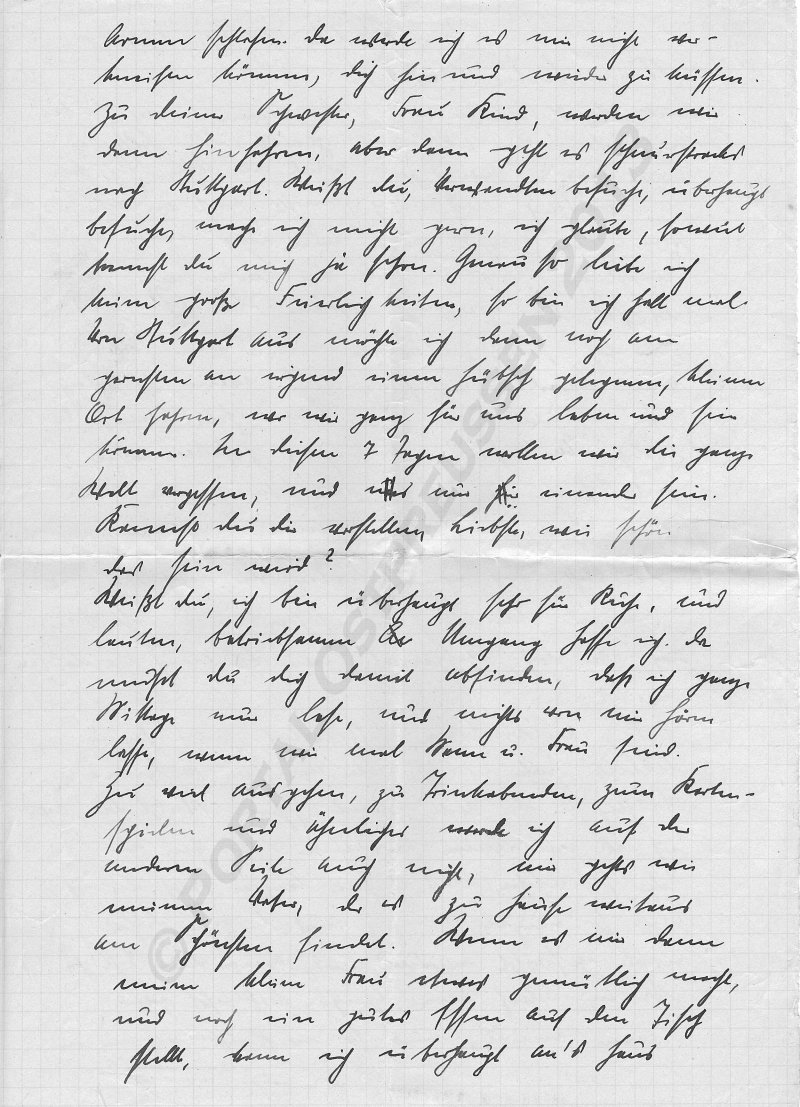 Armen schlafen. Da werde ich es mir nicht ver-
kneifen können, dich hin und wieder zu küssen.
Zu deiner Schwester, Frau Kind, werden wir
dann hinfahren, aber dann geht es schnurstracks
nach Stuttgart. Weißt du, Verwandtenbesuche, überhaupt
besuche, mache ich nicht gern, ich glaube, soweit
kennst du mich ja schon. Genau so liebe ich
keine große Feierlichkeiten, so bin ich halt mal.
Von Stuttgart aus möchte ich dann noch am
gernsten an irgend einen hübsch gelegenen, kleinen
Ort fahren, wo wir ganz für uns leben und sein
können. In diesen 7 Tagen wollen wir die ganze
Welt vergessen, und nur für einander sein.
Kannst du dir vorstellen, Liebste, wie schön
das sein wird?
Weißt du, ich bin überhaupt sehr für Ruhe, und
lauten, betriebsamen Umgang hasse ich. Da
mußt du dich damit abfinden, daß ich ganze
Mittage nur lese, und nichts von mir hören
lasse, wenn wir mal Mann u. Frau sind.
Zu viel ausgehen, zu Trinkabenden, zum Karten-
spielen und ähnliches werde ich auf der
anderen Seite auch nicht, mir gehts wie
meinem Vater, der es zu Hause weitaus
am Schönsten findet. Wenn es mir dann
meine kleine Frau etwas gemütlich macht,
und noch ein gutes Essen auf den Tisch
stellt, kann ich überhaupt an's Haus
© PORTAL OSTPREUSSEN